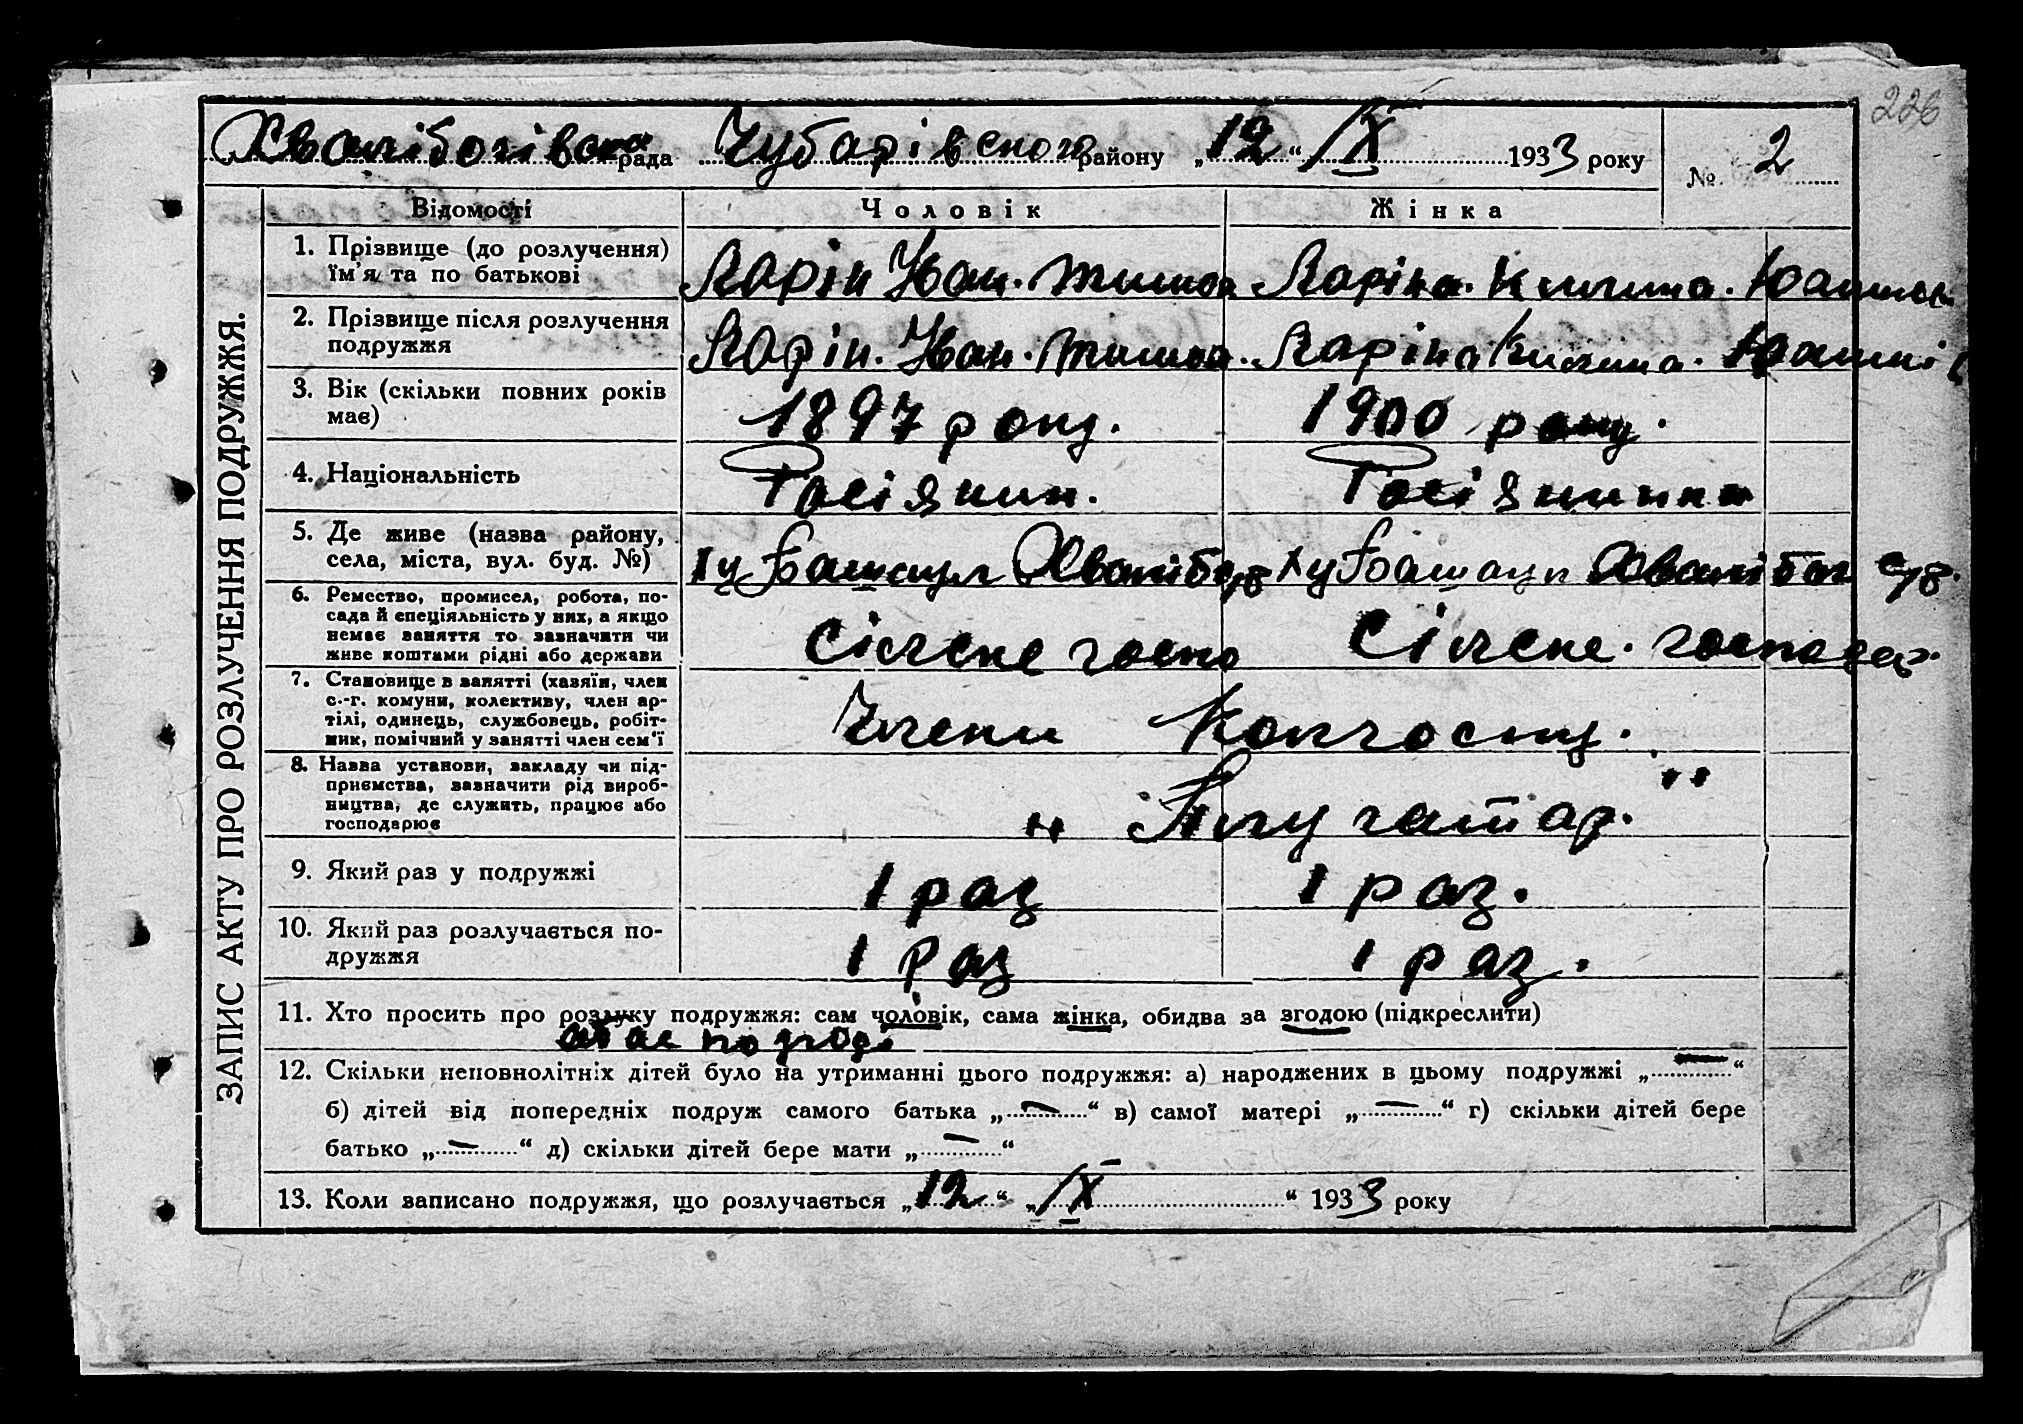 226
Хвалібогівська рада Чубарівського району „12“ /IX 1933 року № 2
ЗАПИС АКТУ ПРО РОЗЛУЧЕННЯ ПОДРУЖЖЯ.
Відомості Чоловік Жінка
1. Прізвище (до розлучення) їм'я та по батькові
Ларін Іван. Тимов Ларіна.
2. Прізвище після розлучення подружжя
Ларін. Іван. Тимов. Ларіна
3. Вік (скільки повних років має)
1897 року. 1900 року.
4. Національність
Росіянин. Росіянинка
5. Де живе (назва району, села, міста, вул. буд. №)
6. Ремество, промисел, робота, посада й спеціяльність у них, а якщо немає заняття то зазначити чи живе коштами рідні або держави
Сілске госпо Сілске. господар.
7. Становище в занятті (хазяїн, член с.-г. комуни, колективу, член артілі, одинець, службовець, робітник, помічний у занятті член сем'ї
Члени Колгоспу.
8. Назва установи, закладу чи підприємства, зазначити рід виробництва, де служить, працює або господарює
9. Який раз у подружжі
1 раз 1 раз.
10. Який раз розлучається подружжя
1 раз 1 раз.
11. Хто просить про розлуку подружжя: сам чоловік, сама жінка, обидва за згодою (підкреслити)
обає по згоді
12. Скільки неповнолітніх дітей було на утриманні цього подружжя: а) народжених в цьому подружжі „—“
б) дітей від попередніх подруж самого батька „—“ в) самої матері „—“ г) скільки дітей бере
батько „—“ д) скільки дітей бере мати „—“
13. Коли записано подружжя, що розлучається „12“ „/IX“ 1933 року